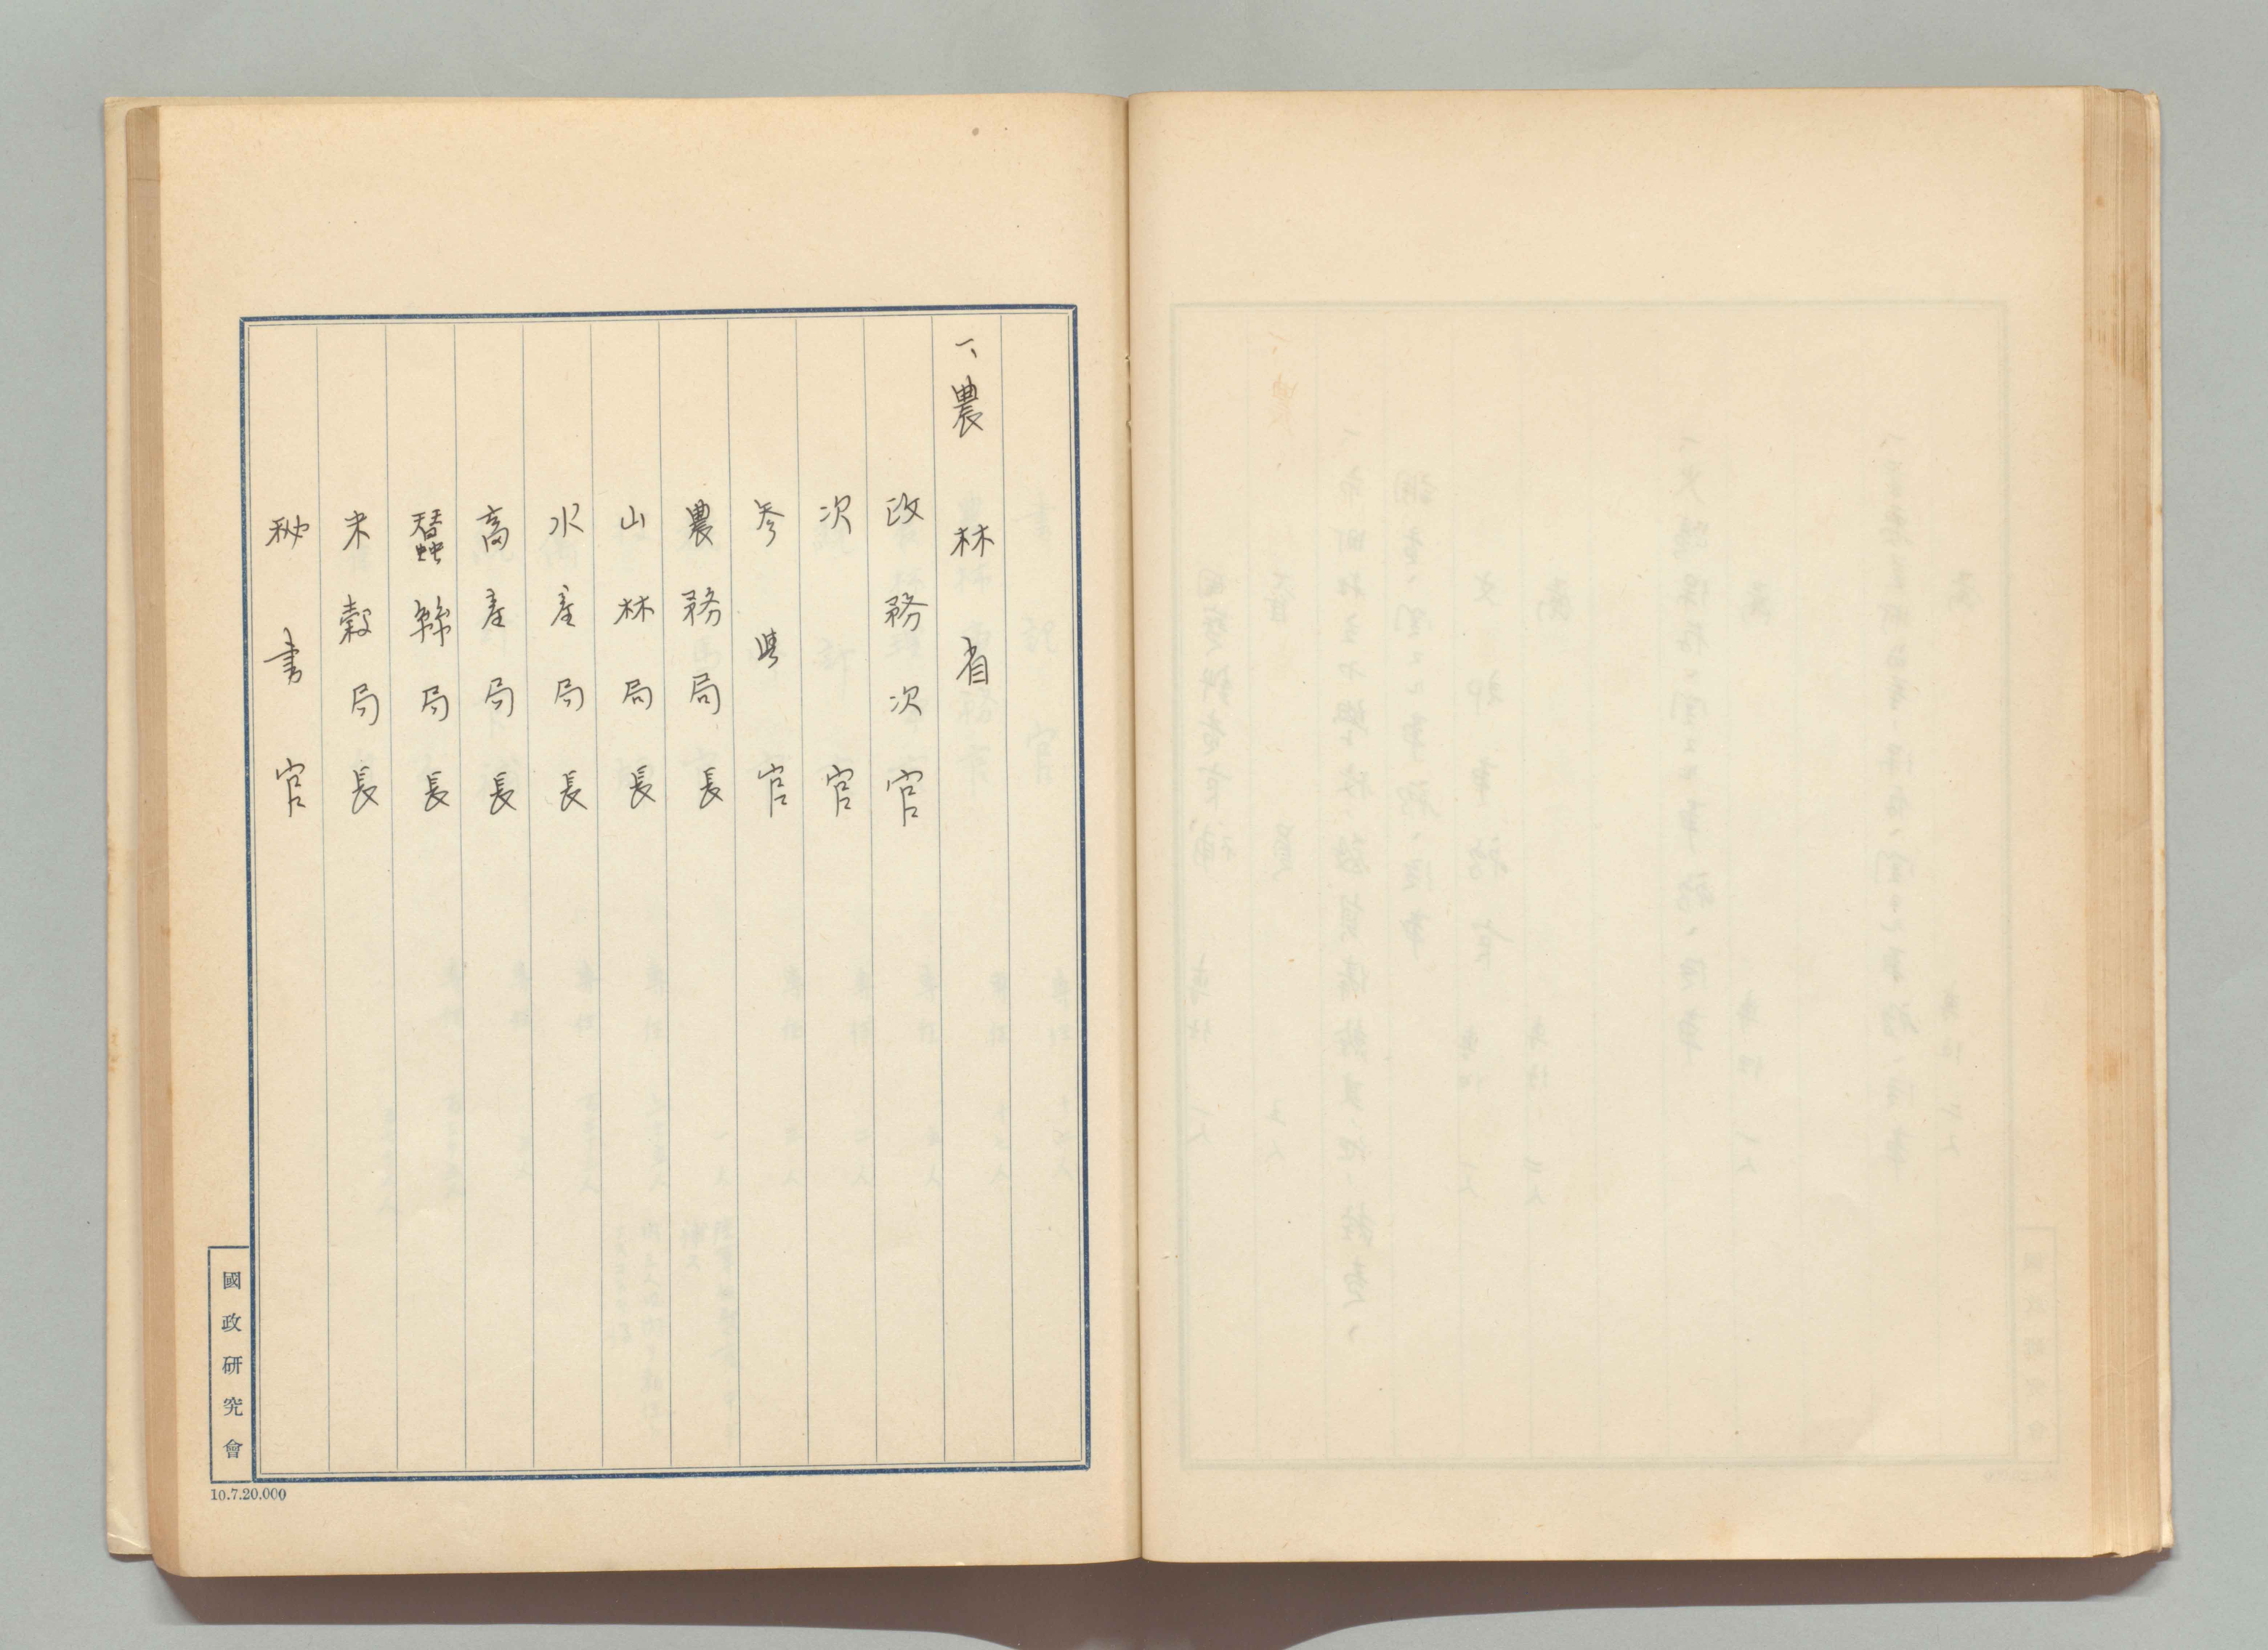 一、農林省
政務次官
次官
参與官
農務局長
山林局長
水産局長
畜産局長
蠶絲局長
米穀局長
秘書官
國政研究會
10.7.20.000